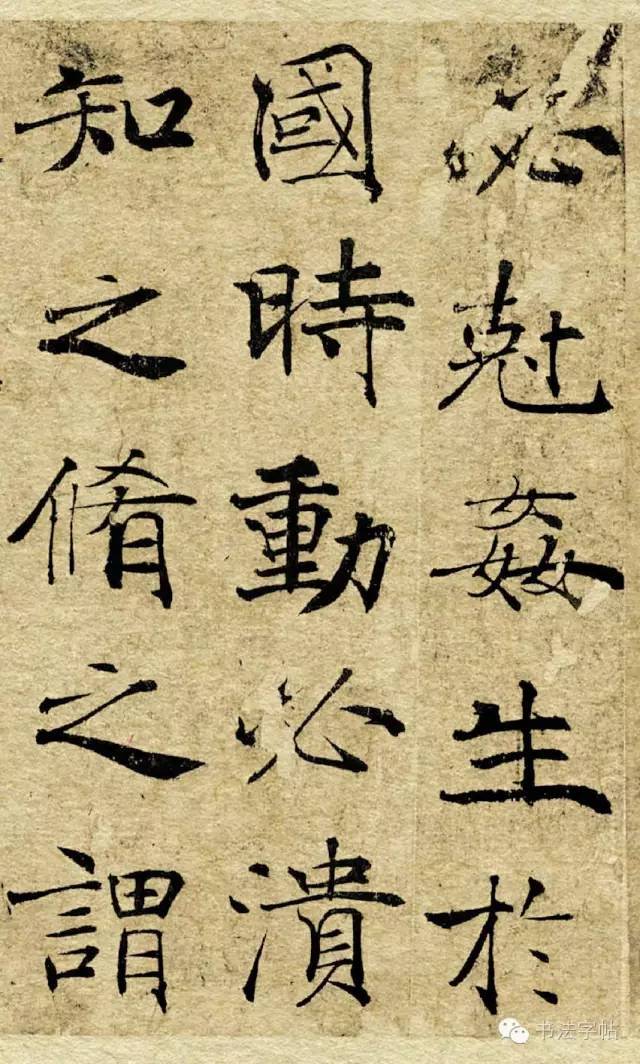 必尅姦生於
國時動必潰
知之脩之謂
书法字帖